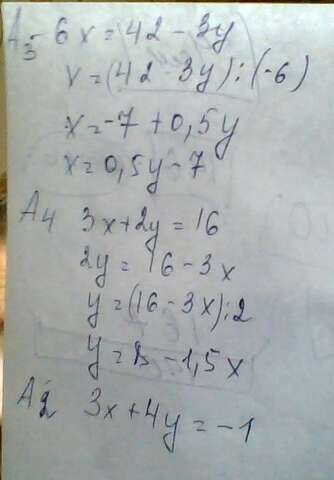 A3 -6x = 42 - 3y
x = (42 - 3y) : (-6)
x = -7 + 0,5y
x = 0,5y - 7
A4 3x + 2y = 16
2y = 16 - 3x
y = (16 - 3x) : 2
y = 8 - 1,5x
A2 3x + 4y = -1